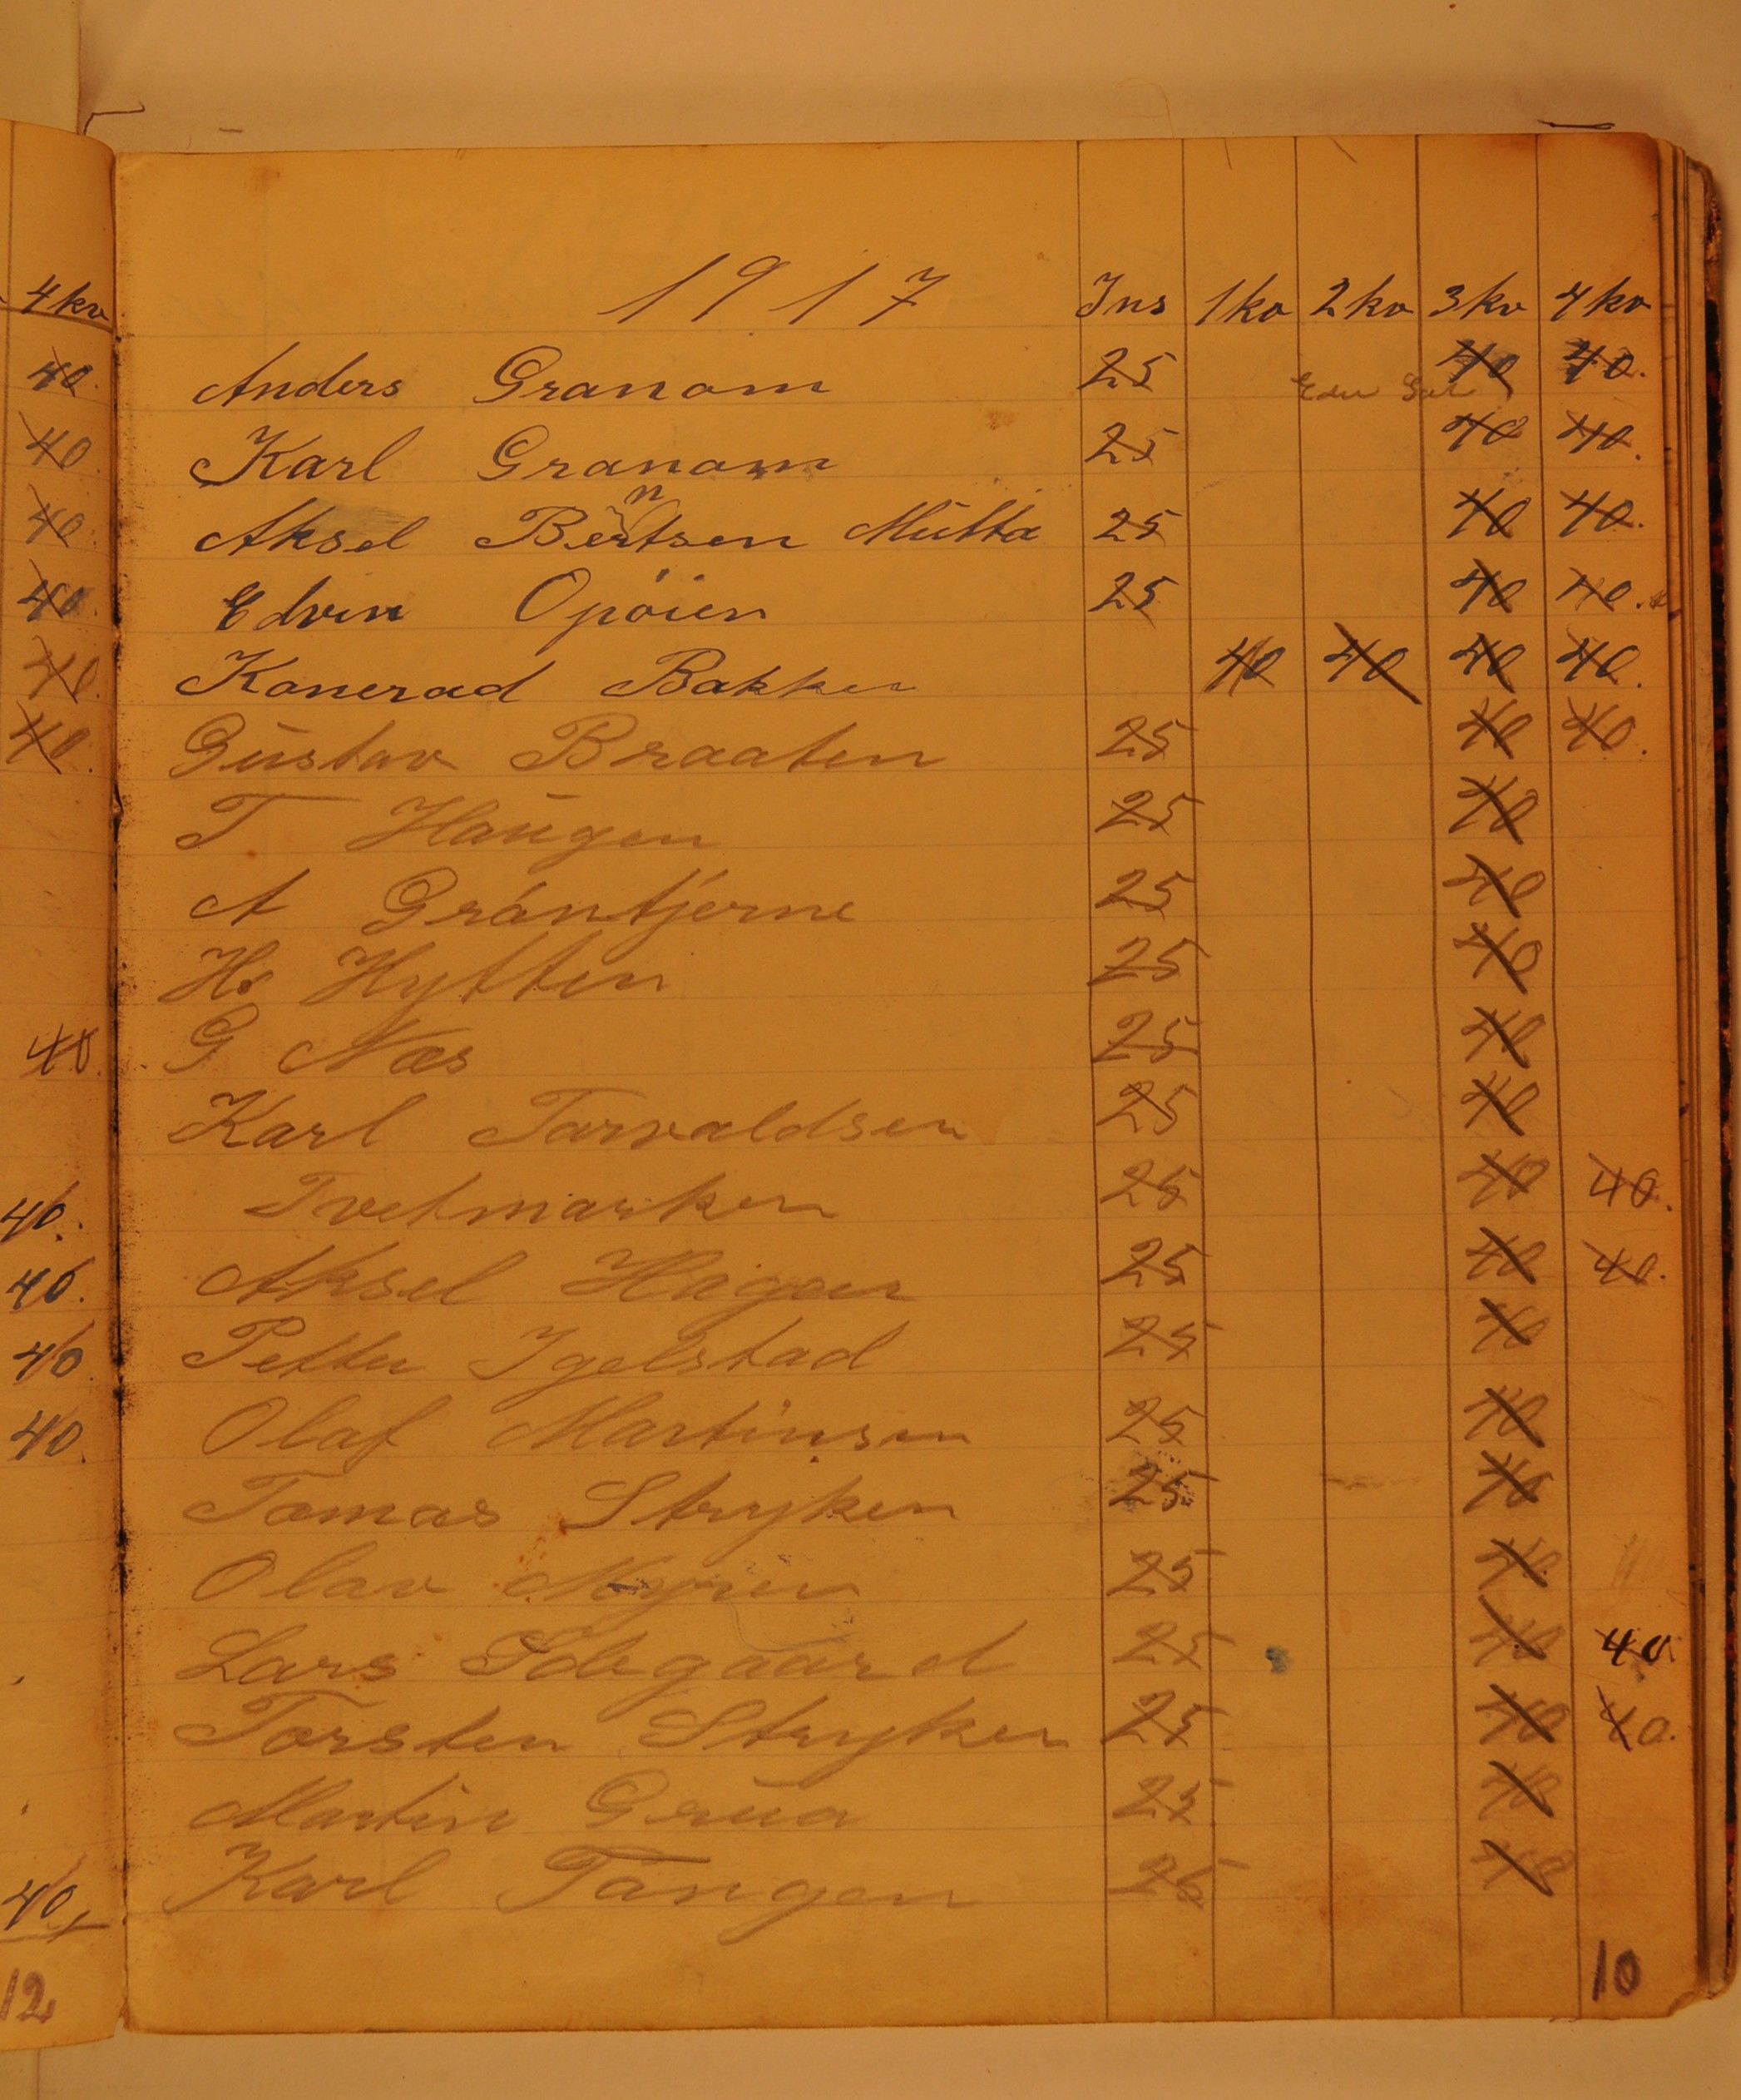 4kv
40.
40
40.
40.
40.
40.
40.
40.
40.
40
40.
40
12
1917 Ins 1kv 2kv 3kv 4kv
Anders Granom 25 40 40.
Karl Granom 25 40 40.
n
Aksel Bertsen Mütta 25 40 40.
Edvin Opöien 25 40 40.
Konerad Bakken 40 40 40 40.
Güstav Braaten 25 40 40.
T Haügen 25 40
A Gråntjerne 25 40
Hs Hytten 25 40
G Næs 25 40
Karl Torvaldsen 25 40
Tvetmarken 25 40 40.
Aksel Hagen 25 40 40.
Petter Igelstad 25 40
Olaf Martinsen 25 40
Tomas Stryken 25 40
Olav Myren 25 40
Lars Ødegaard 25 40 40.
Torsten Stryken 25 40 40.
Martin Grüa 25 40
Karl Tangen 25 40
10